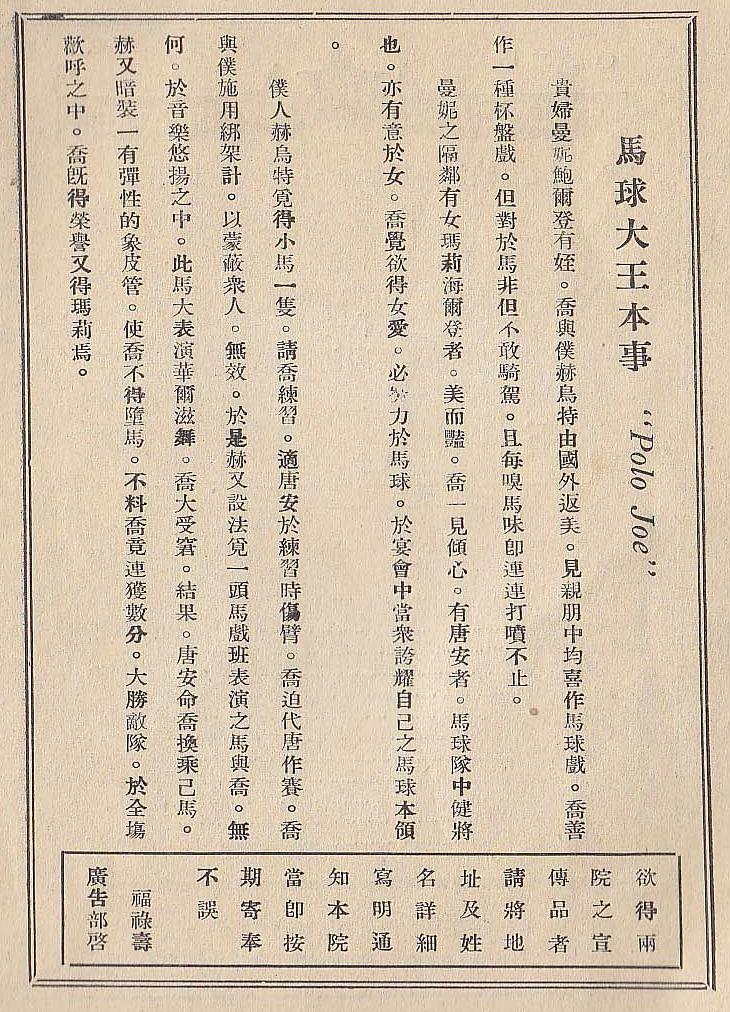 馬球大王本事 "Polo Joe"
貴婦曼妮鮑爾登有姪。喬與僕赫烏特由國外返美。見親朋中均喜作馬球戲。喬善
作一種杯盤戲。但對於馬非但不敢騎駕。且每嗅馬味卽連連打噴不止。
曼妮之隔鄰有女瑪莉海爾登者。美而豔。喬一見傾心。有唐安者。馬球隊中健將
也。亦有意於女。喬覺欲得女愛。必努力於馬球。於宴會中當衆誇耀自己之馬球本領
。
僕人赫烏特覓得小馬一隻。請喬練習。適唐安於練習時傷臂。喬迫代唐作賽。喬
與僕施用綁架計。以蒙蔽衆人。無效。於是赫又設法覓一頭馬戲班表演之馬與喬。無
何。於音樂悠揚之中。此馬大表演華爾滋舞。喬大受窘。結果。唐安命喬換乘己馬。
赫又暗裝一有彈性的象皮管。使喬不得墮馬。不料喬竟連獲數分。大勝敵隊。於全塲
歡呼之中。喬旣得榮譽又得瑪莉焉。
欲得兩
院之宣
傳品者
請將地
址及姓
名詳細
寫明通
知本院
當卽按
期寄奉
不誤
福祿壽
廣告部啓